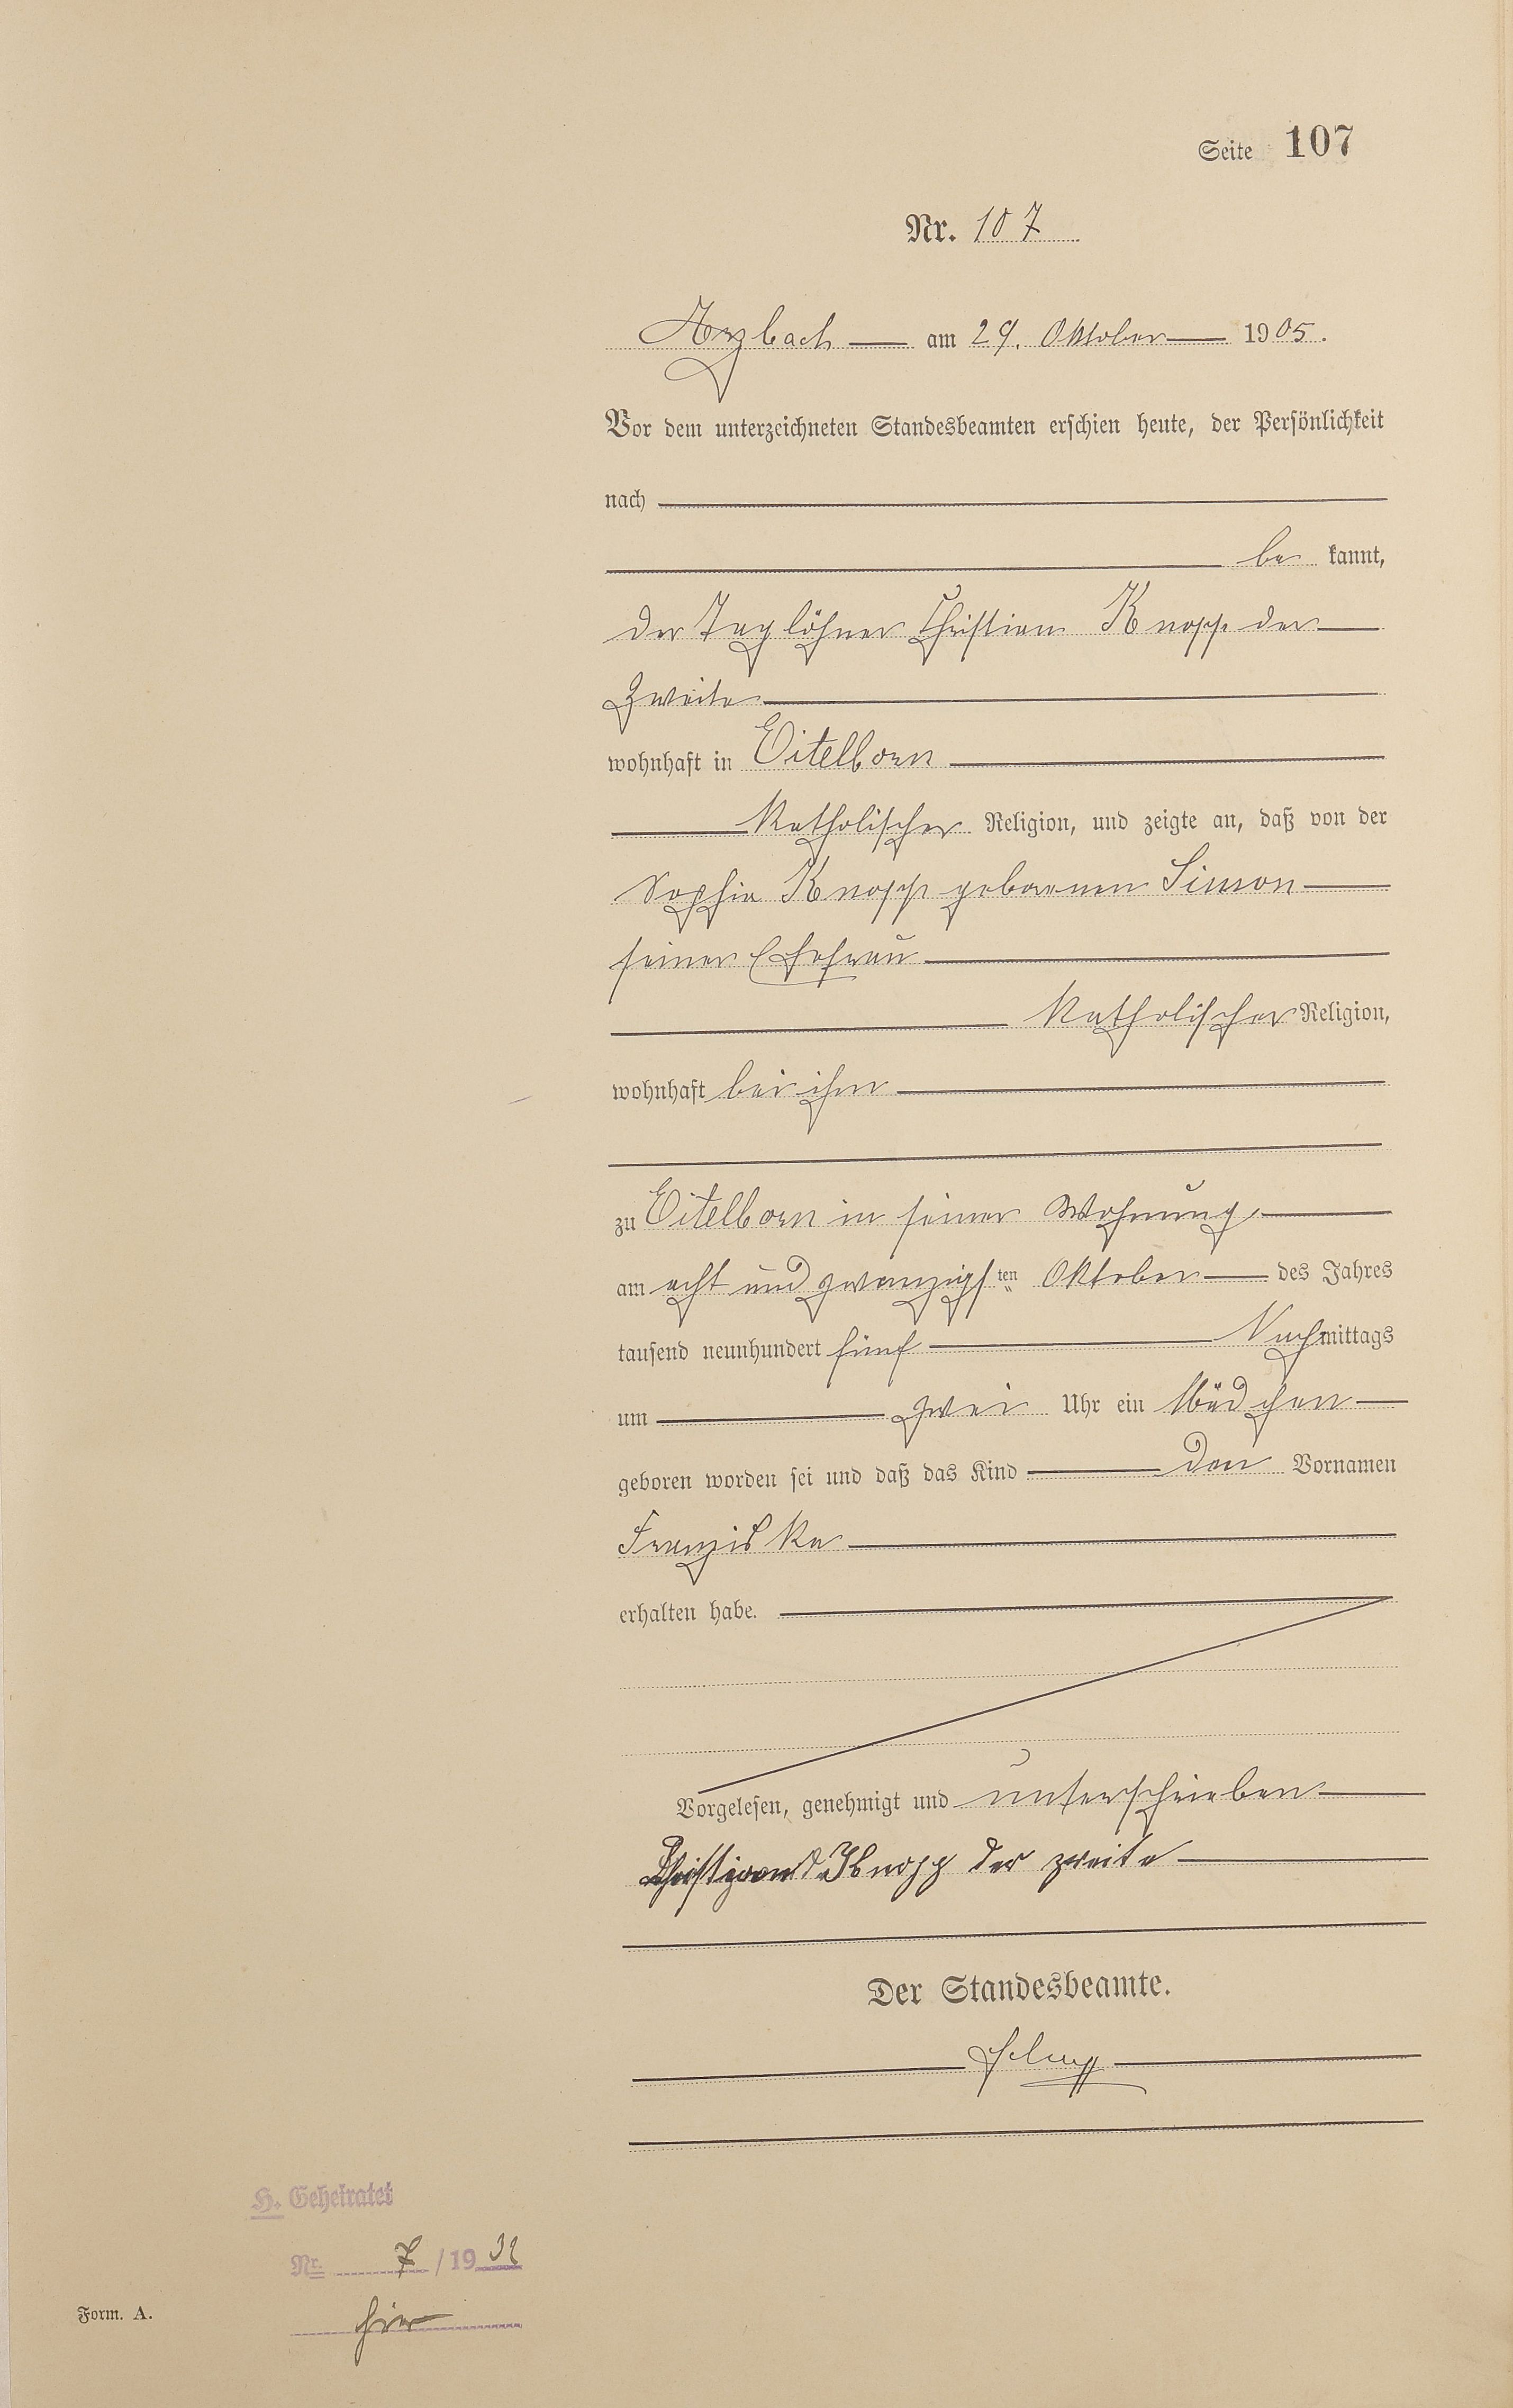 Seite 107
Nr. 107
Arzbach am 29. Oktober 1905.
Vor dem unterzeichneten Standesbeamten erschien heute, der Persönlichkeit
nach
be kannt,
der Taglöhner Christian Knopp der
Zweite
wohnhaft in Eitelborn
Katholischer Religion, und zeigte an, daß von der
Sophia Knopp geborenen Simon
seiner Ehefrau
Katholischer Religion,
wohnhaft bei ihm
zu Eitelborn in seiner Wohnung,
am acht und zwanzigsten Oktober des Jahres
tausend neunhundert fünf Nachmittags
um zwei Uhr ein Mädchen
geboren worden sei und daß das Kind den Vornamen
Franziska
erhalten habe.
Vorgelesen, genehmigt und unterschrieben
Knopp der zweite
Der Standesbeamte.
H. Geheiratet
Nr. 7/19
hier
Form. A.